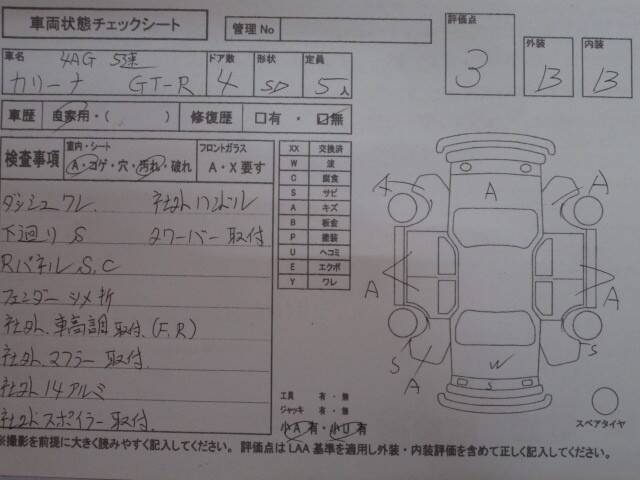 車両状態チェックシート
管理No
評価点
3
外装
B
内装
B
車名 4AG 5速
カリーナ GT-R
ドア数
4
形状
SD
定員
5人
車歴 自家用・( )
修復歴 □有・☑無
検査事項
室内・シート
A・コゲ・穴・汚れ・破れ
フロントガラス
A・X要す
ダッシュワレ 社外ハンドル
下廻りS タワーバー取付
Rパネル S,C
フェンダー ツメ折
社外 車高調取付 (F,R)
社外マフラー取付
社外14アルミ
社外スポイラー取付
XX 交換済
W 波
C 腐食
S サビ
A キズ
B 板金
P 塗装
U ヘコミ
E エクボ
Y ワレ
工具 有・無
ジャッキ 有・無
小A有・小U有
A
A
A
A
A
S
S
A
W
S
スペアタイヤ
※撮影を前提に大きく読みやすく記入してください。評価点はLAA基準を適用し外装・内装評価を含めて正しく記入してください。